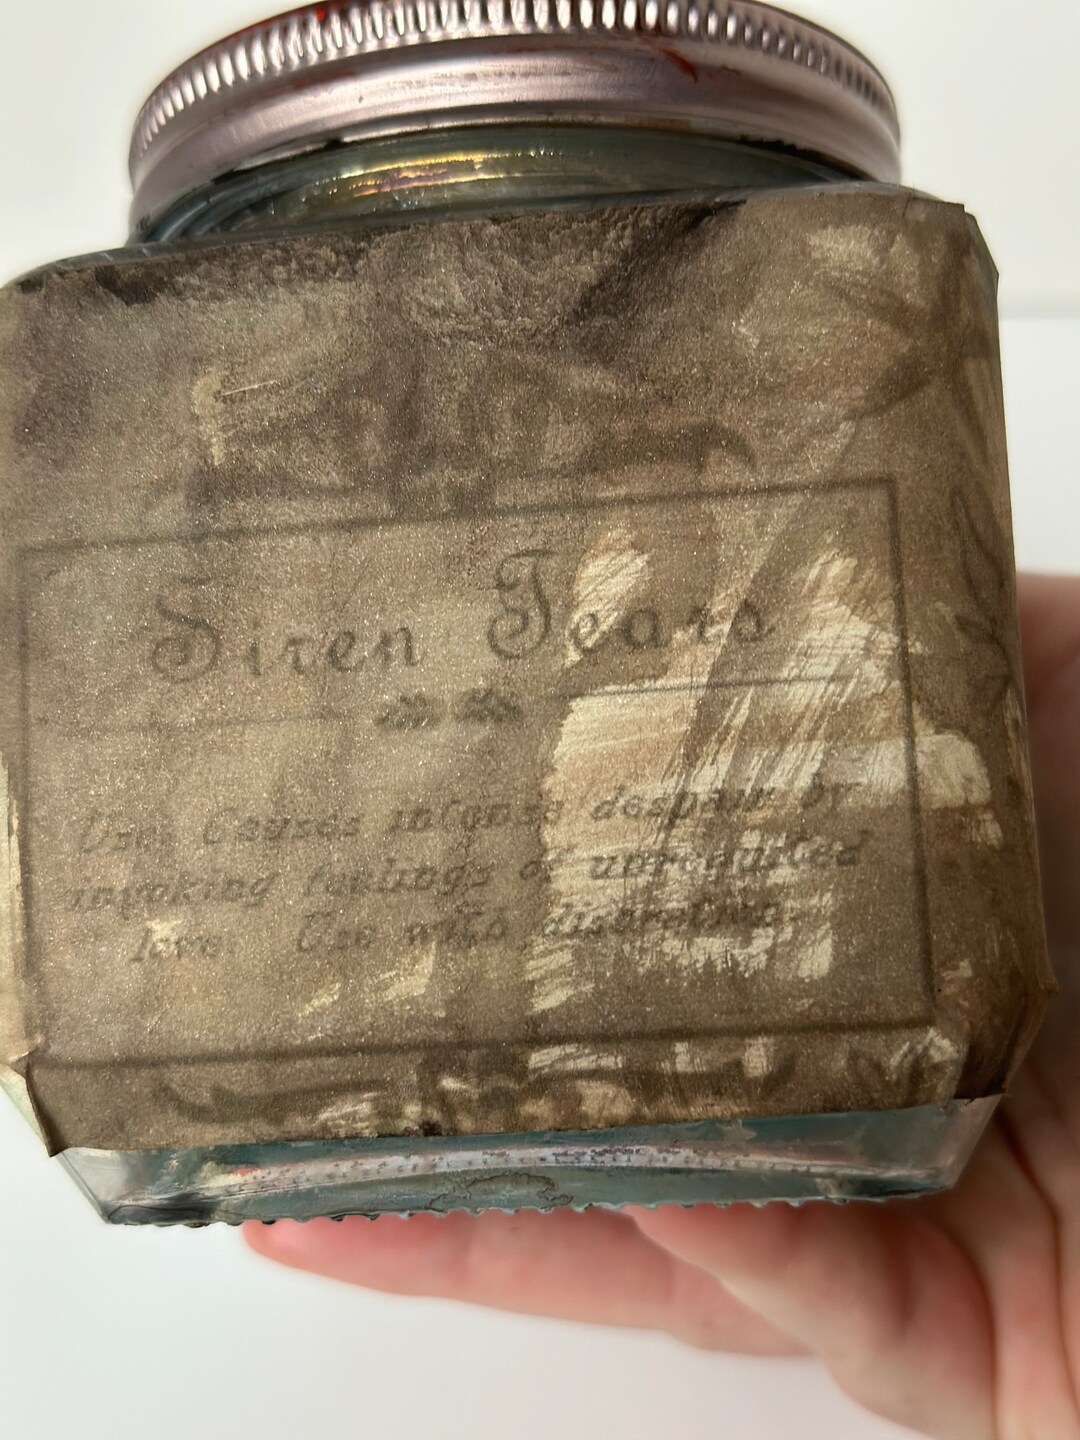 Siren Tears
Use: Causes intense despair by
invoking feelings of unrequited
love. Use with discretion.